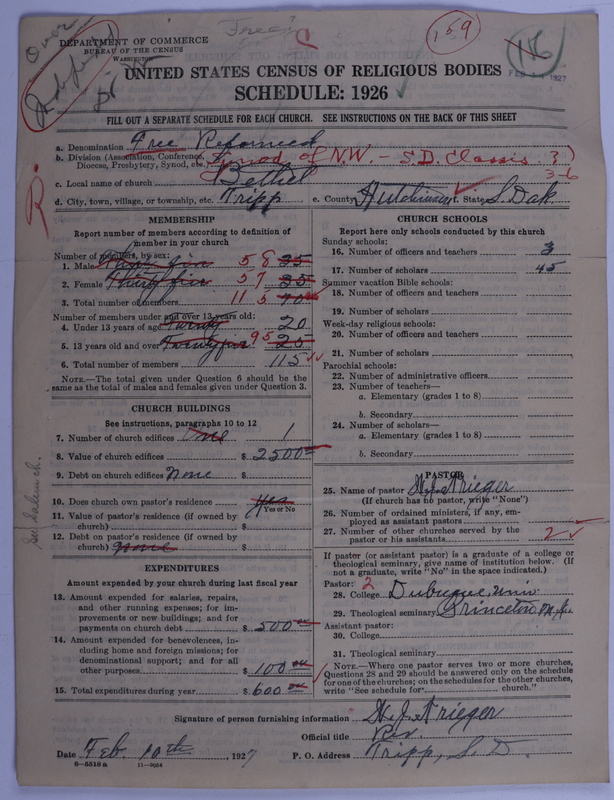 Free?
159
116
DEPARTMENT OF COMMERCE
BUREAU OF THE CENSUS
WASHINGTON
FEB 1927
UNITED STATES CENSUS OF RELIGIOUS BODIES
SCHEDULE: 1926
FILL OUT A SEPARATE SCHEDULE FOR EACH CHURCH. SEE INSTRUCTIONS ON THE BACK OF THIS SHEET
a. Denomination Free Reformed
b. Division (Association, Conference, Synod of N.W. - S.D. Classis
Diocese, Presbytery, Synod, etc.)
3-6
c. Local name of church Bethel
d. City, town, village, or township, etc. Tripp e. County Hutchinson f. State S. Dak.
MEMBERSHIP
Report number of members according to definition of
member in your church
Number of members, by sex:
1. Male Thirty five 58 35
2. Female Thirty five 57 35
3. Total number of members 115 70
Number of members under and over 13 years old:
4. Under 13 years of age Twenty 20
5. 13 years old and over Twenty five 95 25
6. Total number of members 115
NOTE.—The total given under Question 6 should be the
same as the total of males and females given under Question 3.
CHURCH BUILDINGS
See instructions, paragraphs 10 to 12
7. Number of church edifices One 1
8. Value of church edifices $ 2500
9. Debt on church edifices None $
10. Does church own pastor's residence Yes
Yes or No
11. Value of pastor's residence (if owned by
church) $
12. Debt on pastor's residence (if owned by
church) None $
EXPENDITURES
Amount expended by your church during last fiscal year
13. Amount expended for salaries, repairs,
and other running expenses; for im-
provements or new buildings; and for
payments on church debt $ 500
14. Amount expended for benevolences, in-
cluding home and foreign missions; for
denominational support; and for all
other purposes $ 100
15. Total expenditures during year $ 600
CHURCH SCHOOLS
Report here only schools conducted by this church
Sunday schools:
16. Number of officers and teachers 3
17. Number of scholars 45
Summer vacation Bible schools:
18. Number of officers and teachers
19. Number of scholars
Week-day religious schools:
20. Number of officers and teachers
21. Number of scholars
Parochial schools:
22. Number of administrative officers
23. Number of teachers—
a. Elementary (grades 1 to 8)
b. Secondary
24. Number of scholars—
a. Elementary (grades 1 to 8)
b. Secondary
PASTOR
25. Name of pastor H. J. Krieger
(If church has no pastor, write "None")
26. Number of ordained ministers, if any, em-
ployed as assistant pastors
27. Number of other churches served by the
pastor or his assistants 2
If pastor (or assistant pastor) is a graduate of a college or
theological seminary, give name of institution below. (If
not a graduate, write "No" in the space indicated.)
Pastor: 2
28. College Dubuque Univ.
29. Theological seminary Princeton
Assistant pastor:
30. College
31. Theological seminary
NOTE.—Where one pastor serves two or more churches,
Questions 28 and 29 should be answered only on the schedule
for one of the churches; on the schedules for the other churches,
write "See schedule for church."
Signature of person furnishing information H. J. Krieger
Official title Rev.
Date Feb. 10th, 1927 P. O. Address Tripp, S. D.
6-5518a 11-9054